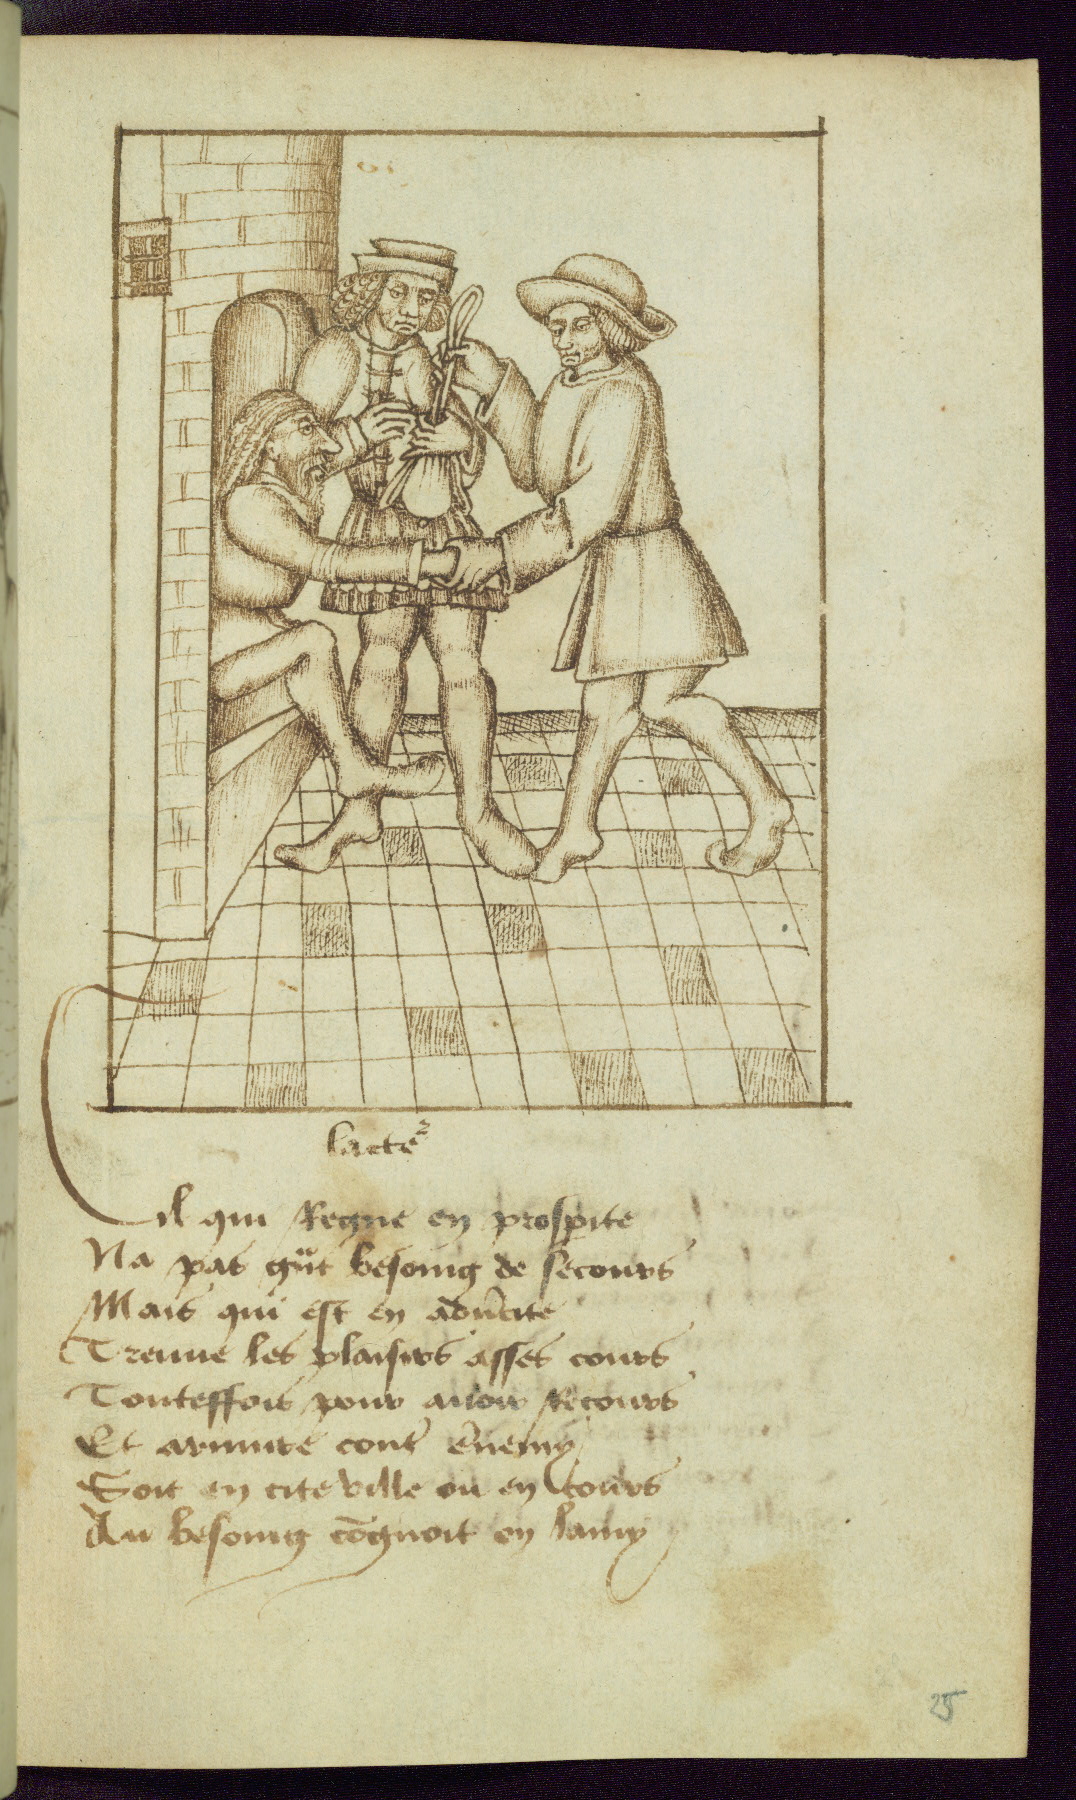 lacteᵉ
Cil qui Regne en prosp̱ite
Na pas gñt besoing de secours
Mais qui est en adũsite
Treuue les plaisirs asses cours
Touteffois pour auoir Recours
Et armure cont̃ ẽnemy
Soit en cite ville ou en tours
Au besoing cõgnoit on lamy
25